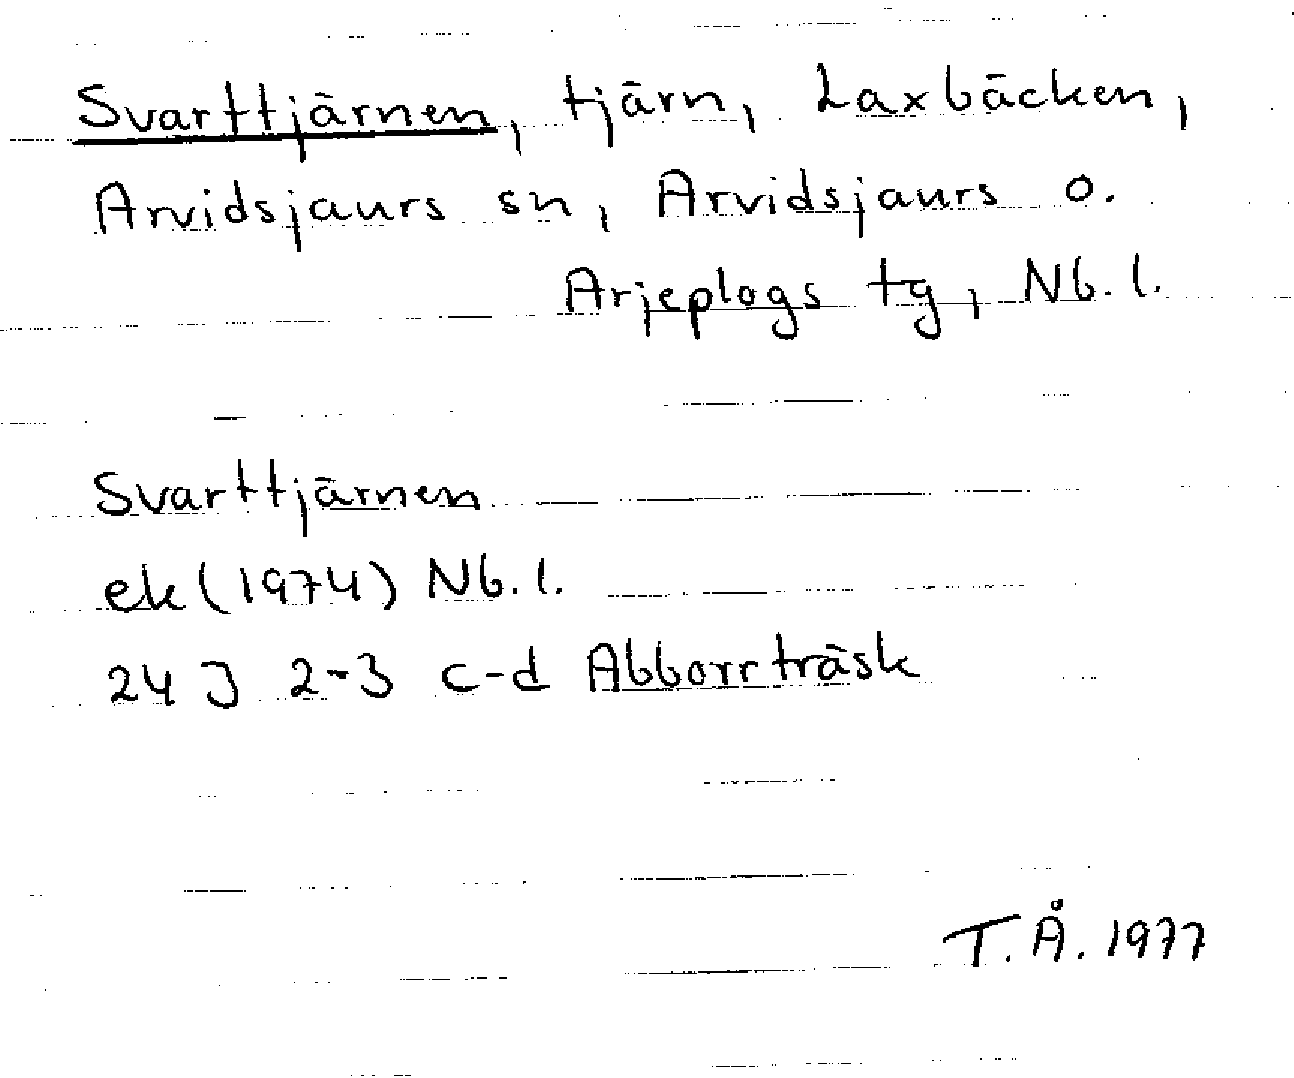 Svarttjärnen, tjärn, Laxbäcken,
Arvidsjaurs sn, Arvidsjaurs o.
Arjeplogs tg, Nb. l.
Svarttjärnen
ek (1974) Nb. l.
24 J 2-3 c-d Abborrträsk
T. Å. 1977